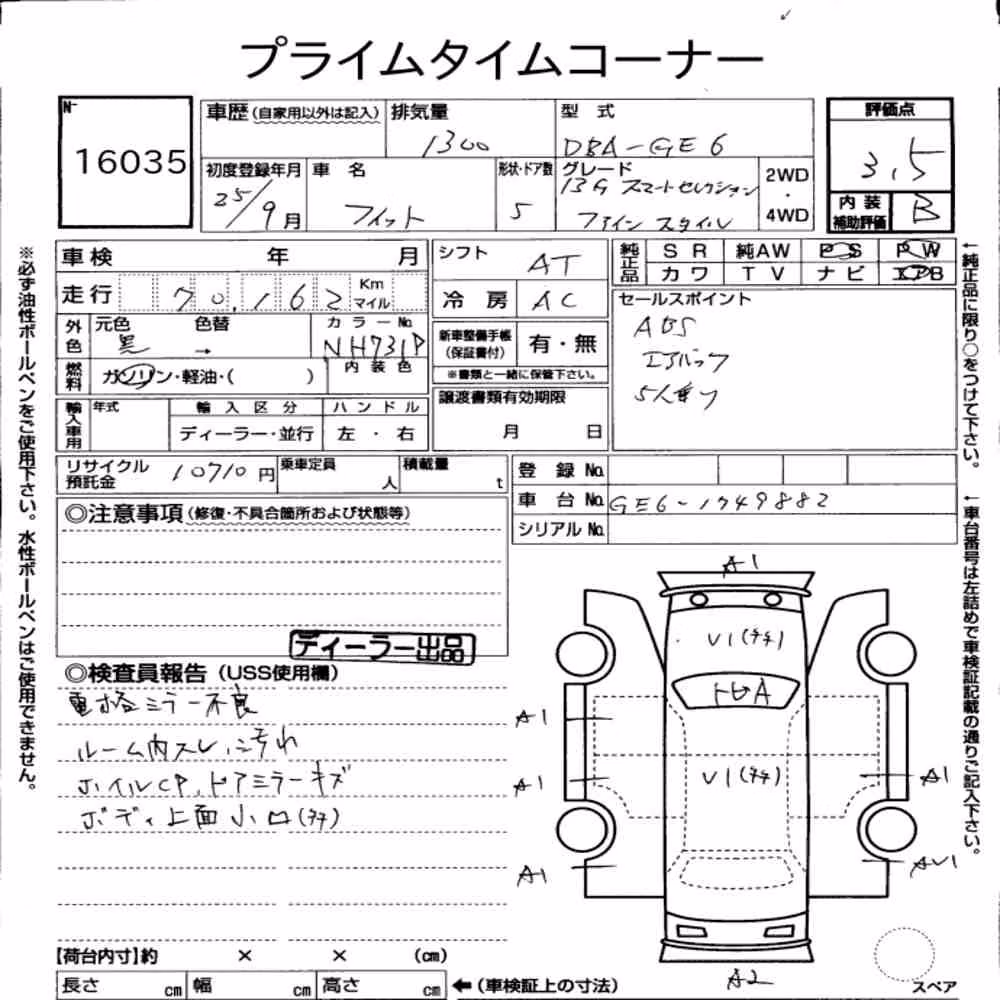 プライムタイムコーナー
No
16035
車歴(自家用以外は記入) 排気量 1300
型式 DBA-GE6
評価点 3.5
内装補助評価 B
初度登録年月 25/9月
車名 フィット
形状・ドア数 5
グレード 13G スマートセレクション
ファインスタイル
2WD・4WD
車検 年 月
シフト AT
純正品 SR 純AW PS PW
カワ TV ナビ エアB
走行 70,162 Km マイル
冷房 AC
セールスポイント
ABS
エアバック
5人乗り
外色 元色 黒 色替 → カラーNo. NH731P
新車整備手帳(保証書付) 有・無
※書類と一緒に保管下さい。
燃料 ガソリン・軽油・( ) 内装色
譲渡書類有効期限 月 日
輸入車用 年式 輸入区分 ハンドル
ディーラー・並行 左・右
リサイクル預託金 10710円 乗車定員 人 積載量 t
登録No.
車台No. GE6-1749882
シリアルNo.
◎注意事項(修復・不具合箇所および状態等)
ディーラー出品
◎検査員報告(USS使用欄)
電格ミラー不良
ルーム内スレ、汚れ
ホイルCP、ドアミラーキズ
ボディ上面小ロ(チナ)
A1
V1(チナ)
トビA
A1
V1(チナ)
A1
A1
A1
AV1
A2
スペア
【荷台内寸】約 × × (cm)
長さ cm 幅 cm 高さ cm ←(車検証上の寸法)
※必ず油性ボールペンをご使用下さい。水性ボールペンはご使用できません。
←純正品に限り○をつけて下さい。
←車台番号は左詰めで車検証記載の通りご記入下さい。